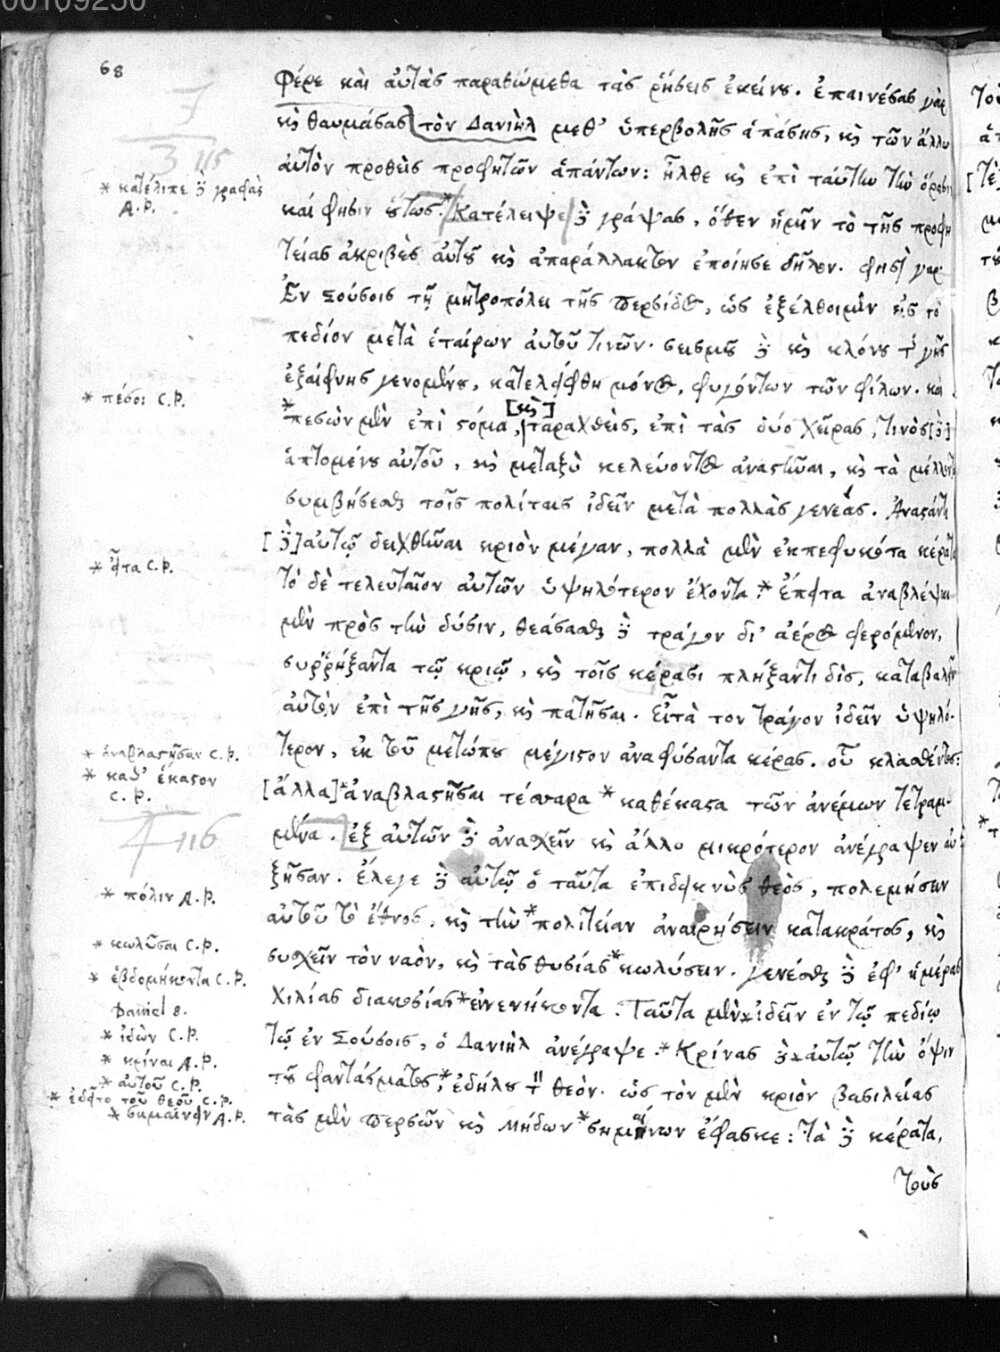 00109250
68
Φέρε καὶ αὐτὰς παραθώμεθα τὰς ῥήσεις ἐκείνου. ἐπαινέσας γὰρ
καὶ θαυμάσας τὸν Δανιὴλ μεθ' ὑπερβολῆς ἁπάσης, καὶ τῶν ἄλλω
αὐτὸν προθεὶς προφητῶν ἁπάντων: ἦλθε καὶ ἐπὶ ταύτην τὴν ὅρασιν
καί φησιν οὕτως.* Κατέλειψε δὲ γράψας, ὅθεν ἡμῖν τὸ τῆς προφη
τείας ἀκριβὲς αὐτοῦ καὶ ἀπαράλλακτον ἐποίησε δῆλον. φησὶ γὰρ
Ἐν Σούσοις τῇ μητροπόλει τῆς Περσίδος, ὡς ἐξέλθοιμεν εἰς τὸ
πεδίον μετὰ ἑταίρων αὐτοῦ τινῶν. σεισμοῦ δὲ καὶ κλόνου τῆς γῆς
ἐξαίφνης γενομένου, κατελείφθη μόνος, φυγόντων τῶν φίλων. καὶ
*πεσὼν μὲν ἐπὶ στόμα, [καὶ] ταραχθεὶς, ἐπὶ τὰς δύο χεῖρας, τινὸς [δὲ]
ἁπτομένου αὐτοῦ, καὶ μεταξὺ κελεύοντος ἀναστῆναι, καὶ τὰ μέλλοντα
συμβήσεσθαι τοῖς πολίταις ἰδεῖν μετὰ πολλὰς γενεάς. Ἀναστάντι
[δὲ] αὐτῷ δειχθῆναι κριὸν μέγαν, πολλὰ μὲν ἐκπεφυκότα κέρατα
τὸ δὲ τελευταῖον αὐτῶν ὑψηλότερον ἔχοντα.* Ἔπειτα ἀναβλέψαι
μὲν πρὸς τὴν δύσιν, θεάσασθαι δὲ τράγον δι' ἀέρος φερόμενον,
συῤῥήξαντα τῷ κριῷ, καὶ τοῖς κέρασι πλήξαντι δὶς, καταβαλεῖν
αὐτὸν ἐπὶ τῆς γῆς, καὶ πατῆσαι. Εἶτὰ τον τράγον ἰδεῖν ὑψηλό-
τερον, ἐκ τοῦ μετώπου μέγιστον ἀναφύσαντα κέρας. οὗ κλασθέντος:
[ἄλλα] *ἀναβλαστῆσαι τέσσαρα *καθέκαστα τῶν ἀνέμων τετραμ-
μένα. ἐξ αὐτῶν δὲ ἀνασχεῖν καὶ ἄλλο μικρότερον ἀνέγραψεν αὐ
ξῆσαν. ἔλεγε δὲ αὐτῷ ὁ ταῦτα ἐπιδεικνὺς θεὸς, πολεμήσειν
αὐτοῦ τὸ ἔθνος, καὶ τὴν *πολιτείαν ἀναιρήσειν κατακράτος, καὶ
συχεῖν τὸν ναὸν, καὶ τὰς θυσίας *κωλύσειν. γενέσθαι δὲ ἐφ' ἡμέρας
χιλίας διακοσίας *ἐννενήκοντα. Ταῦτα μὲν *ἰδεῖν ἐν τῷ πεδίῳ
τῷ ἐν Σούσοις, ὁ Δανιὴλ ἀνέγραψε.* Κρίνας δὲ *αὐτῷ τὴν ὄψιν
τοῦ φαντάσματος,* ἐδήλου τὸν θεὸν. ὡς τὸν μὲν κριὸν βασιλείας
τὰς μὲν Περσῶν καὶ Μήδων *σημαίνων ἔφασκε: τὰ δὲ κέρατα,
τοὺς
3 115
* κατέλιπε δὲ γραφὰς
A.P.
* πέσοι C.P.
* εἶτα C.P.
* ἀναβλαστῆσαι C.P.
* καθ' ἕκαστον
C.P.
4 116
* πόλιν A.P.
* κωλῦσαι C.P.
* ἑβδομήκοντα C.P.
Daniel 8.
* ἰδὼν C.P.
* κρίναι A.P.
* αὐτοῦ C.P.
* ἐδεῖτο τοῦ θεοῦ C.P.
* σημαίνειν A.P.